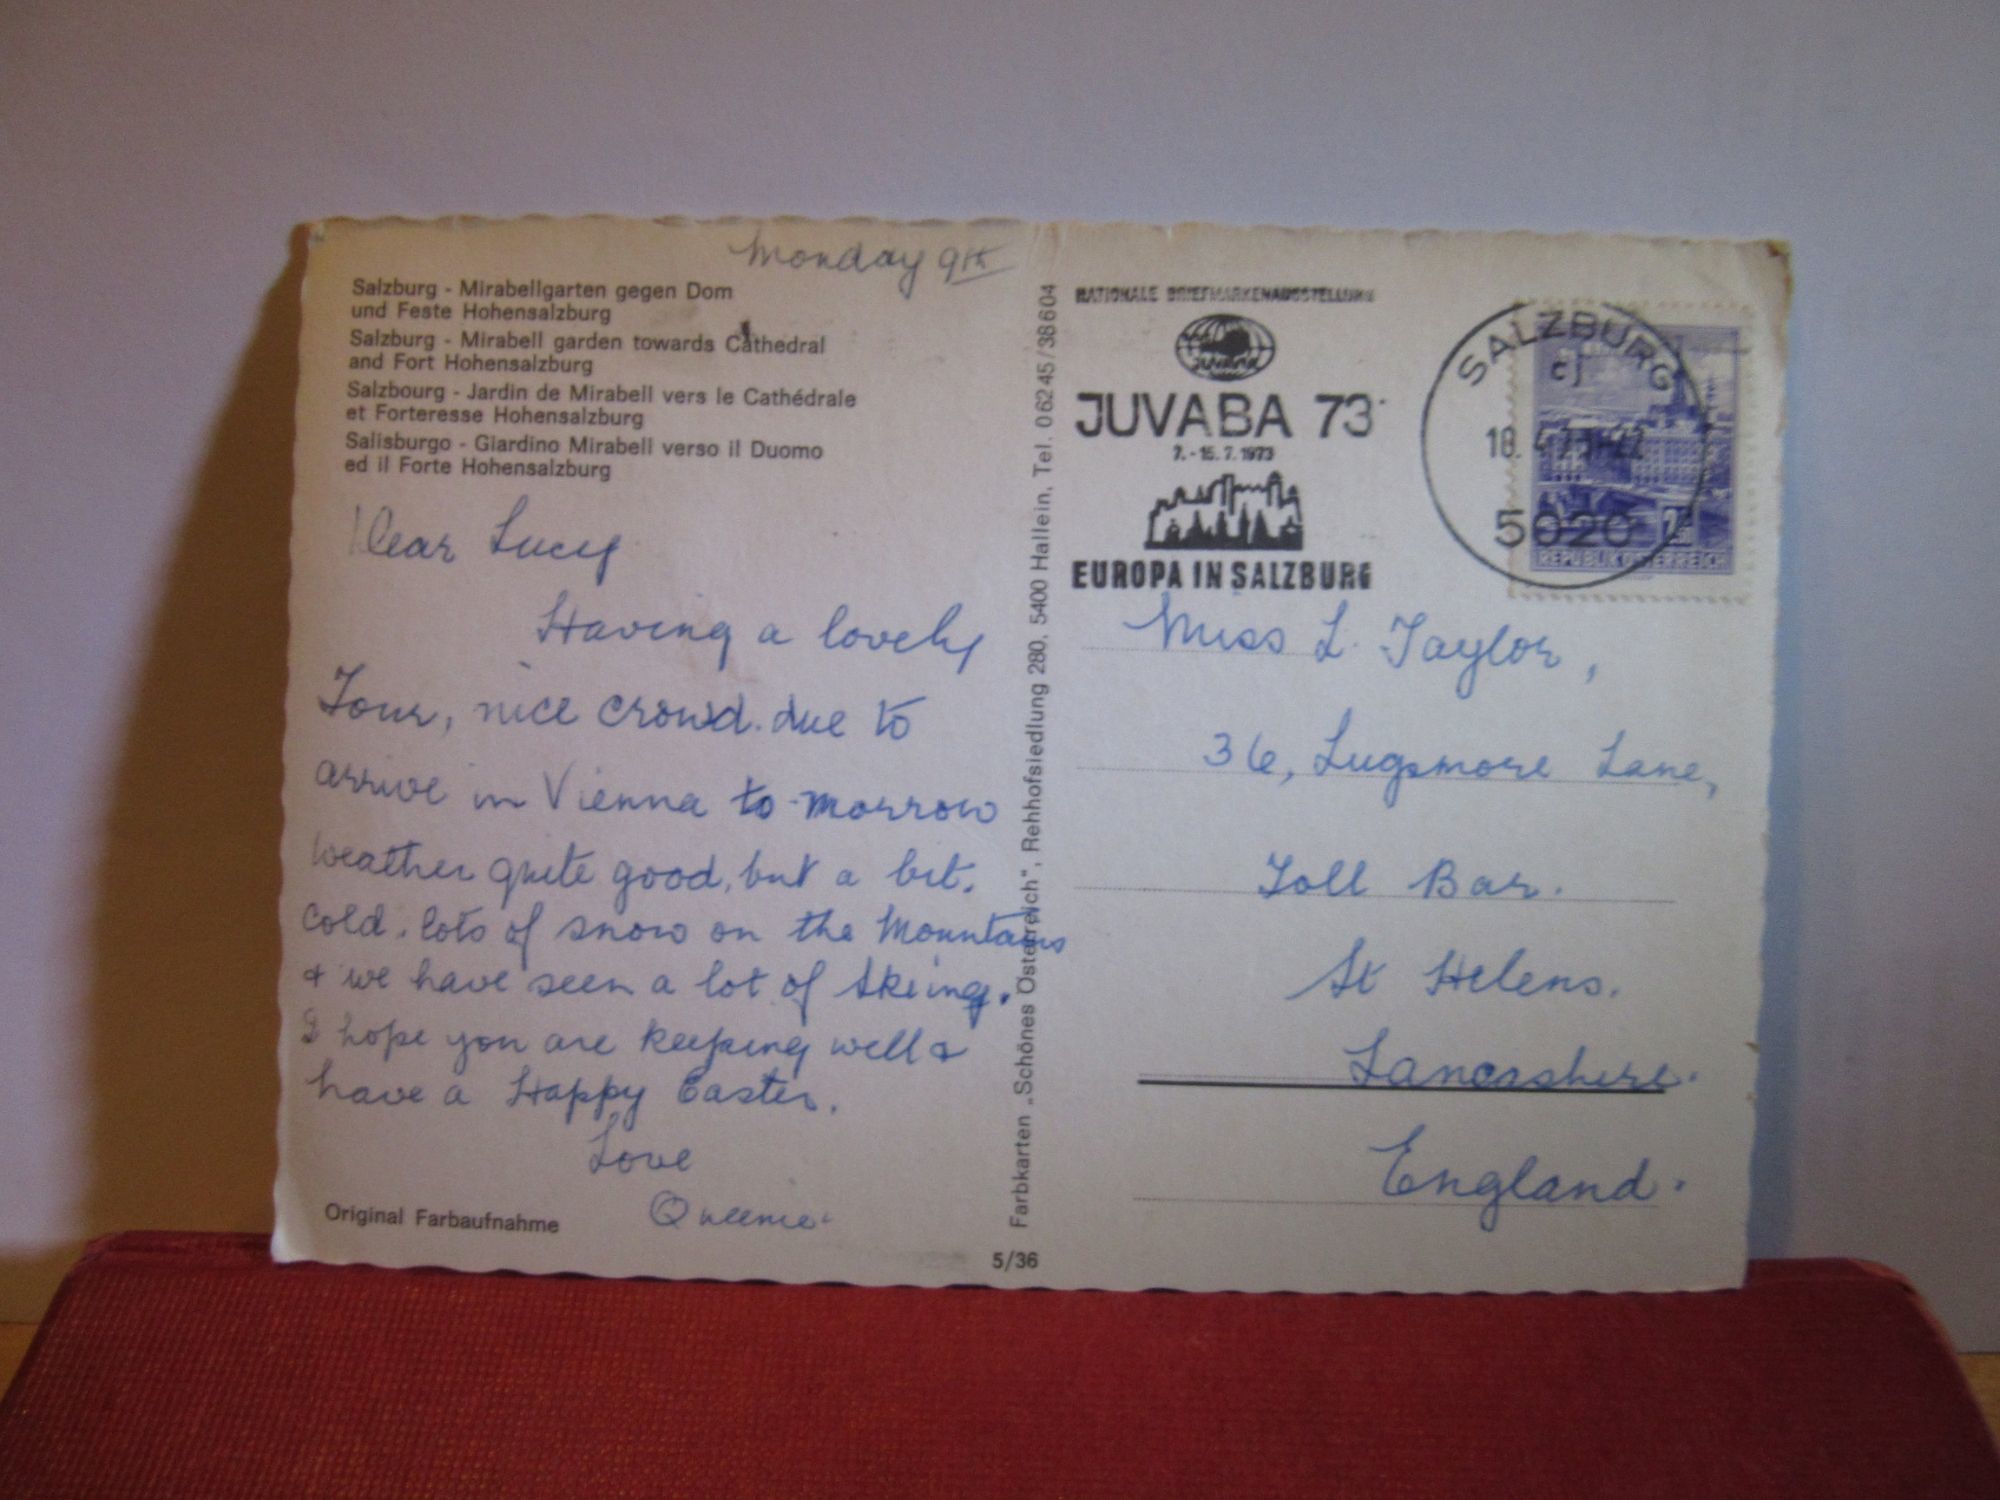 Monday 9th
Salzburg - Mirabellgarten gegen Dom
und Feste Hohensalzburg
Salzburg - Mirabell garden towards Cathedral
and Fort Hohensalzburg
Salzbourg - Jardin de Mirabell vers le Cathédrale
et Forteresse Hohensalzburg
Salisburgo - Giardino Mirabell verso il Duomo
ed il Forte Hohensalzburg
Dear Lucy
Having a lovely
Tour, nice crowd. due to
arrive in Vienna to-morrow
weather quite good, but a bit.
cold. lots of snow on the Mountains
& we have seen a lot of skiing.
I hope you are keeping well &
have a Happy Easter.
Love
Queenie.
Original Farbaufnahme
5/36
Farbkarten „Schönes Österreich", Rehhofsiedlung 280, 5400 Hallein, Tel. 0 62 45 / 38 6 04
NATIONALE BRIEFMARKENAUSSTELLUNG
JUVABA 73
7.-15.7.1973
EUROPA IN SALZBURG
SALZBURG
cj
5020
REPUBLIK ÖSTERREICH
Miss L. Taylor,
36, Lugsmore Lane,
Toll Bar.
St Helens.
Lancashire.
England.